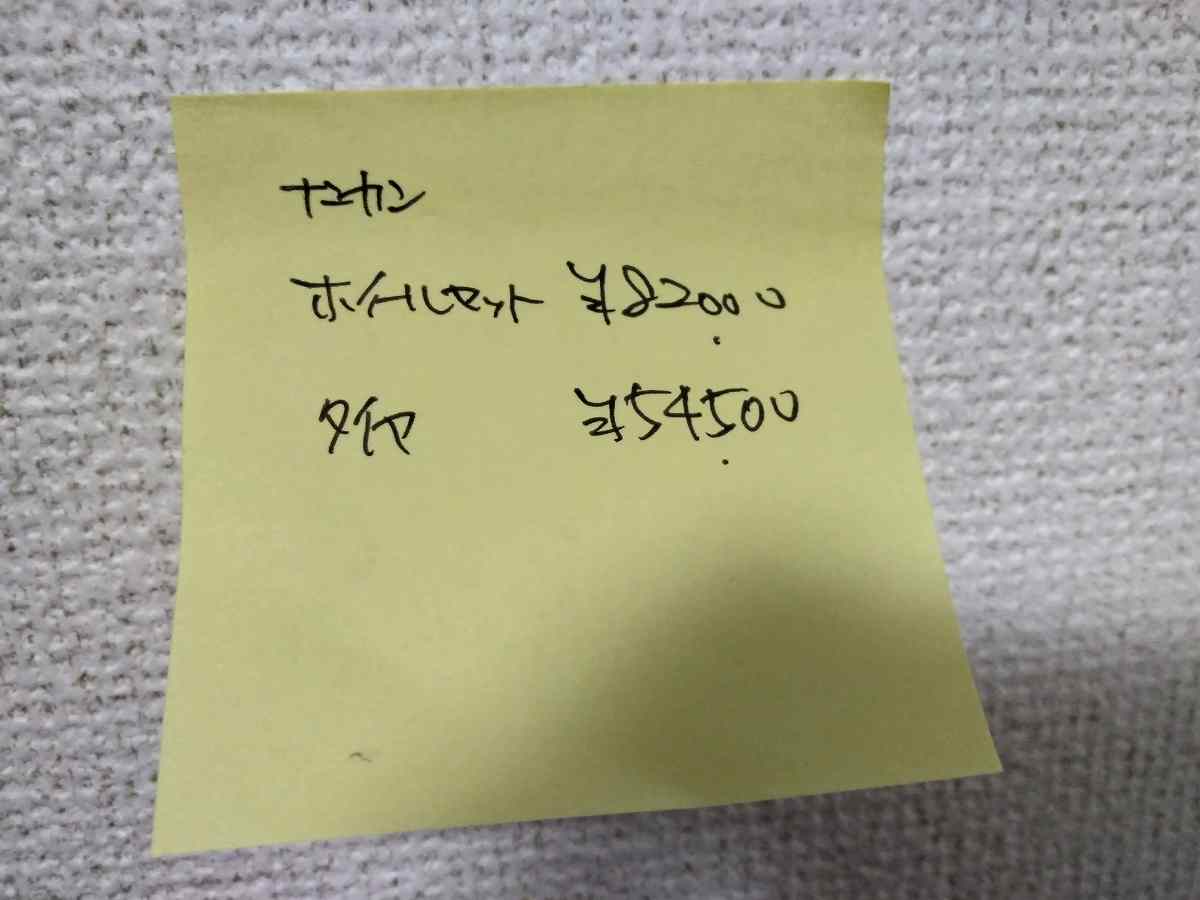 ホイールセット ¥82,000
タイヤ ¥54,500